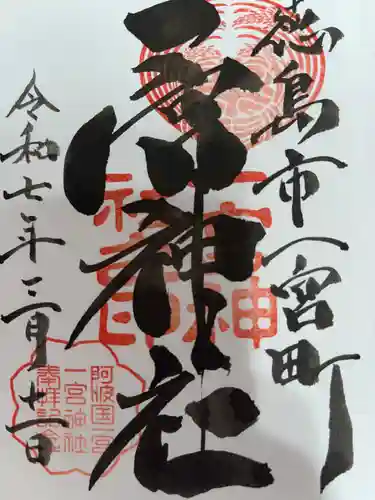 徳島市一宮町
一宮神社
令和七年三月廿一日
一宮神社印
阿波国一宮
一宮神社
奉拝記念